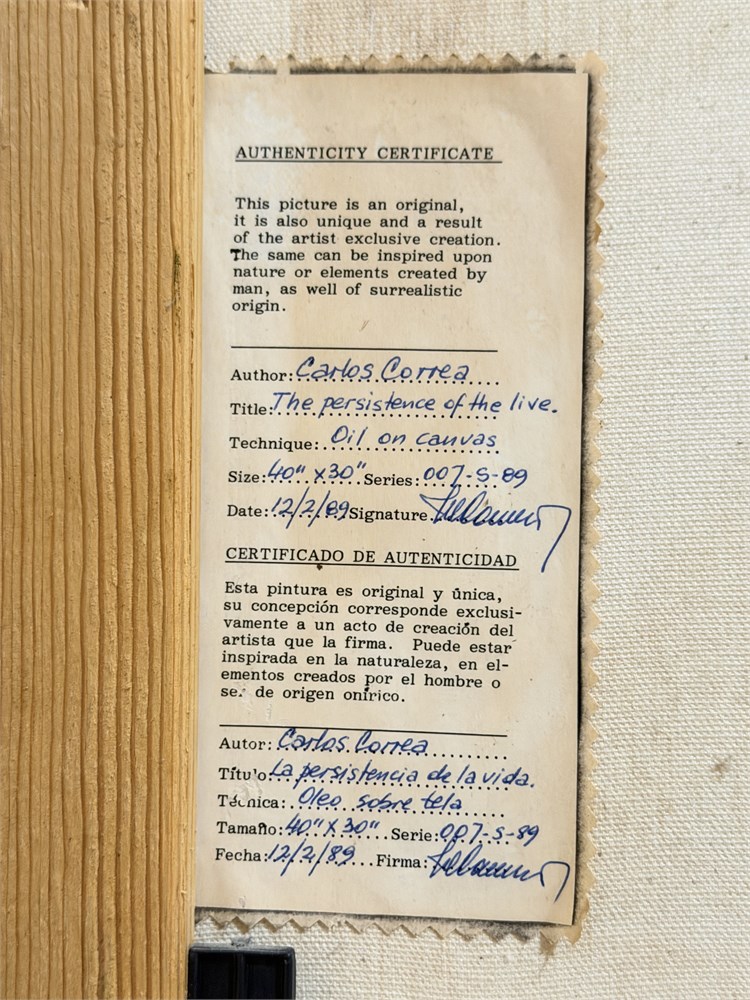 AUTHENTICITY CERTIFICATE
This picture is an original,
it is also unique and a result
of the artist exclusive creation.
The same can be inspired upon
nature or elements created by
man, as well of surrealistic
origin.
Author: Carlos Correa
Title: The persistence of the live.
Technique: Oil on canvas
Size: 40" x 30" Series: 007-S-89
Date: 12/2/89 Signature
CERTIFICADO DE AUTENTICIDAD
Esta pintura es original y única,
su concepción corresponde exclusi-
vamente a un acto de creación del
artista que la firma. Puede estar
inspirada en la naturaleza, en el-
ementos creados por el hombre o
ser de origen onírico.
Autor: Carlos Correa
Título: La persistencia de la vida.
Técnica: Oleo sobre tela
Tamaño: 40" X 30" Serie: 007-S-89
Fecha: 12/2/89 Firma: